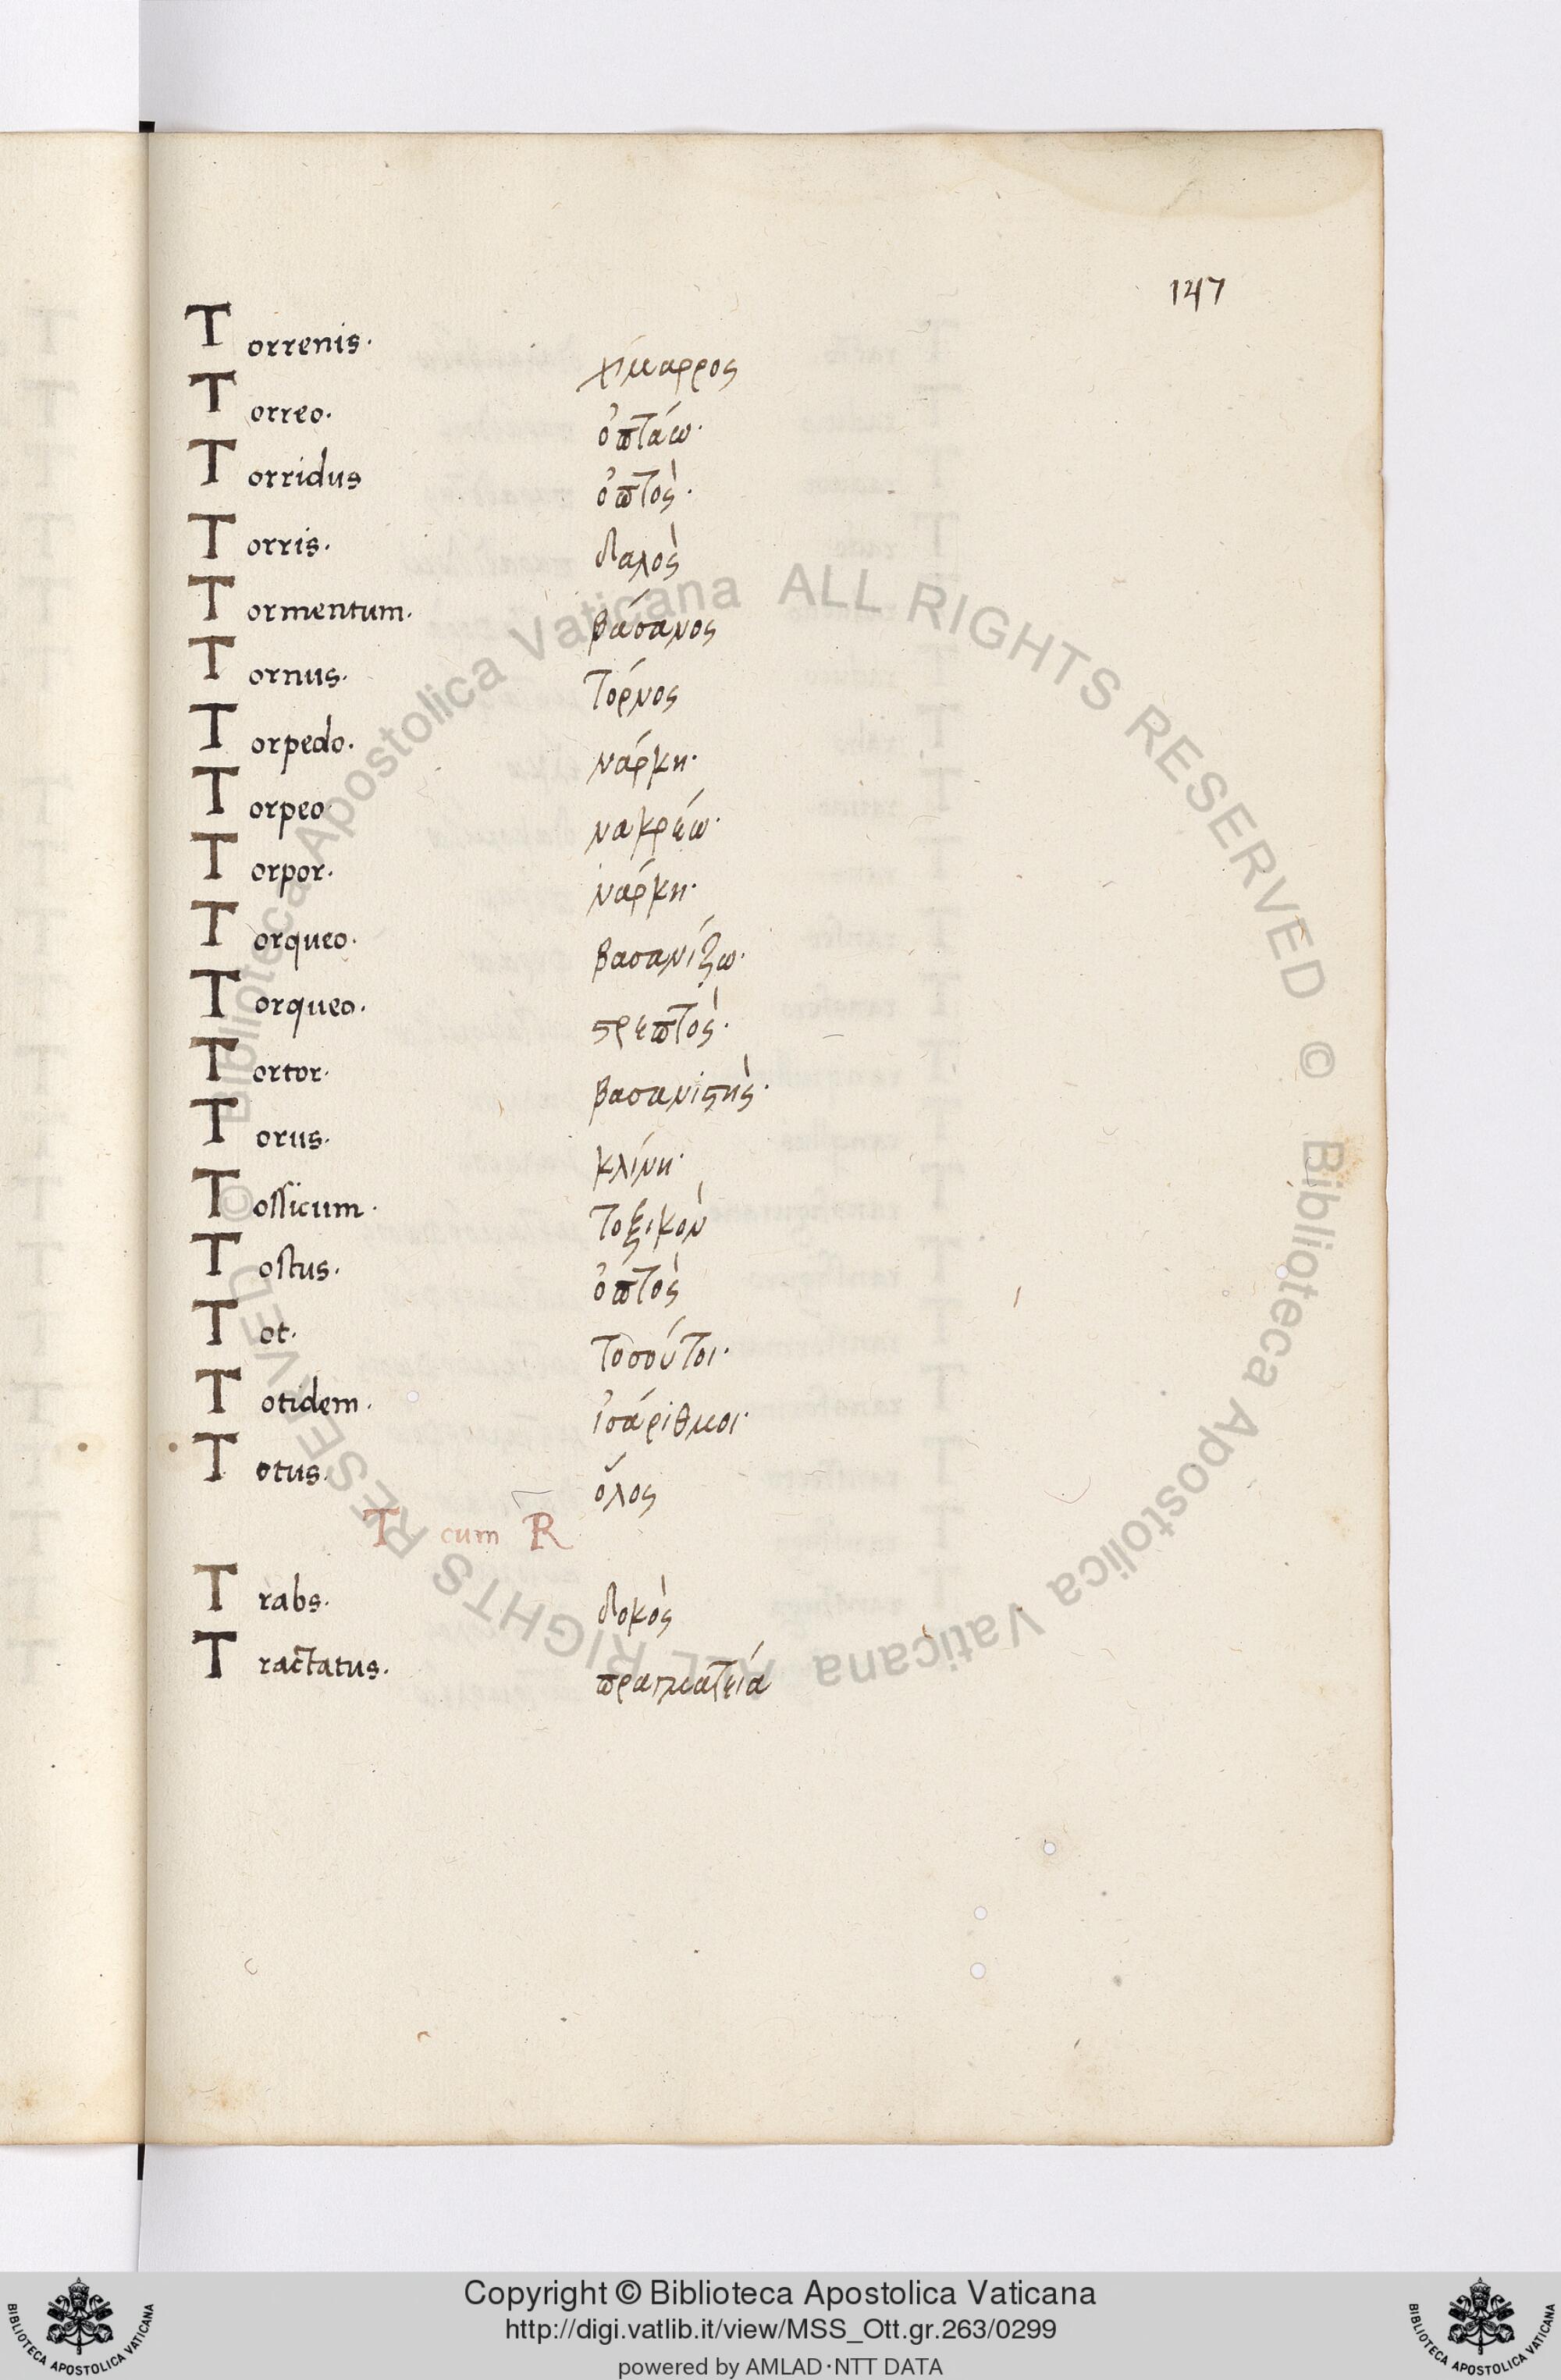 147
Torrenis. χίμαρρος
Torreo. ὀπτάω.
Torridus ὀπτὸς.
Torris. δαλὸς
Tormentum. βάσανος
Tornus. τόρνος
Torpedo. νάρκη.
Torpeo νακρέω.
Torpor. νάρκη.
Torqueo. βασανίζω.
Torqueo. στρεπτὸς.
Tortor. βασανιστὴς.
Torus. κλίνη.
Tossicum. τοξικὸν
Tostus. ὀπτὸς
Tot. τοσούτοι.
Totidem. ἰσάριθμοι.
Totus. ὅλος
T cum R
Trabs. δοκὸς
Tractatus. πραγματεία
Biblioteca Apostolica Vaticana ALL RIGHTS RESERVED ©
Biblioteca Apostolica Vaticana ALL RIGHTS RESERVED ©
Copyright © Biblioteca Apostolica Vaticana
http://digi.vatlib.it/view/MSS_Ott.gr.263/0299
powered by AMLAD·NTT DATA
BIBLIOTECA APOSTOLICA VATICANA
BIBLIOTECA APOSTOLICA VATICANA